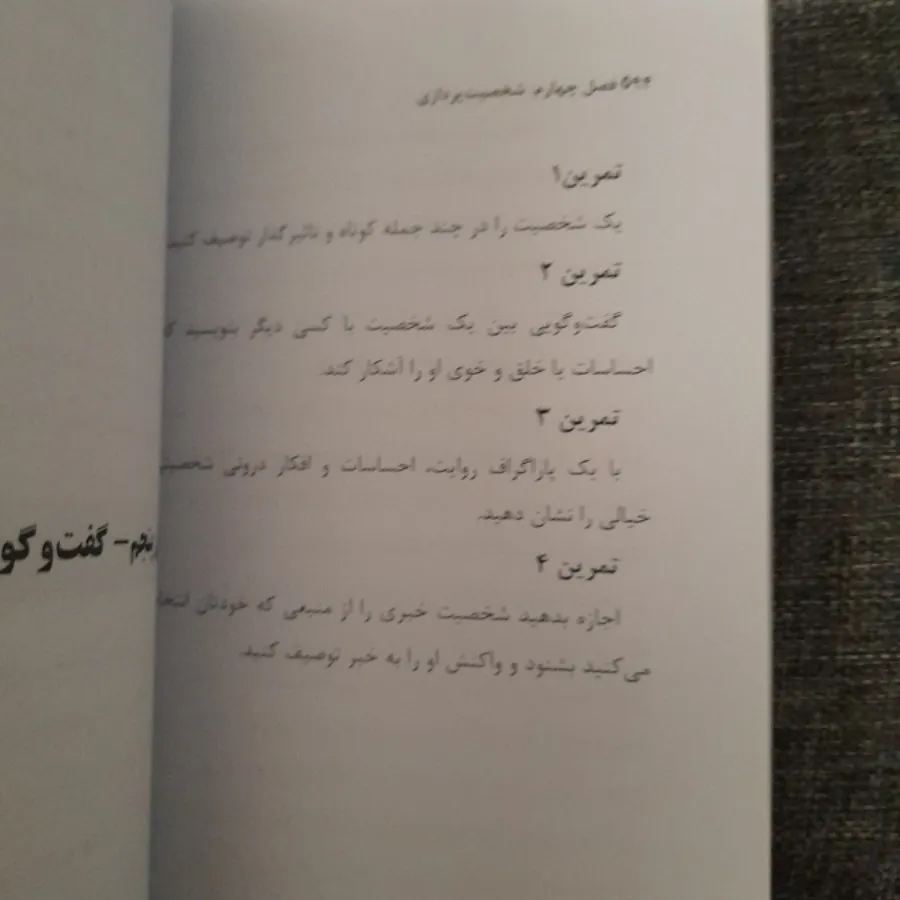 فصل چهارم. شخصیت‌پردازی
تمرین۱
یک شخصیت را در چند جمله کوتاه و تاثیرگذار توصیف کنید
تمرین ۲
گفت‌وگویی بین یک شخصیت با کسی دیگر بنویسید
احساسات یا خلق و خوی او را آشکار کند.
تمرین ۳
با یک پاراگراف روایت، احساسات و افکار درونی
خیالی را نشان دهید.
تمرین ۴
اجازه بدهید شخصیت خبری را از منبعی که خودتان
می‌کنید بشنود و واکنش او را به خبر توصیف کنید.
– گفت‌و گو